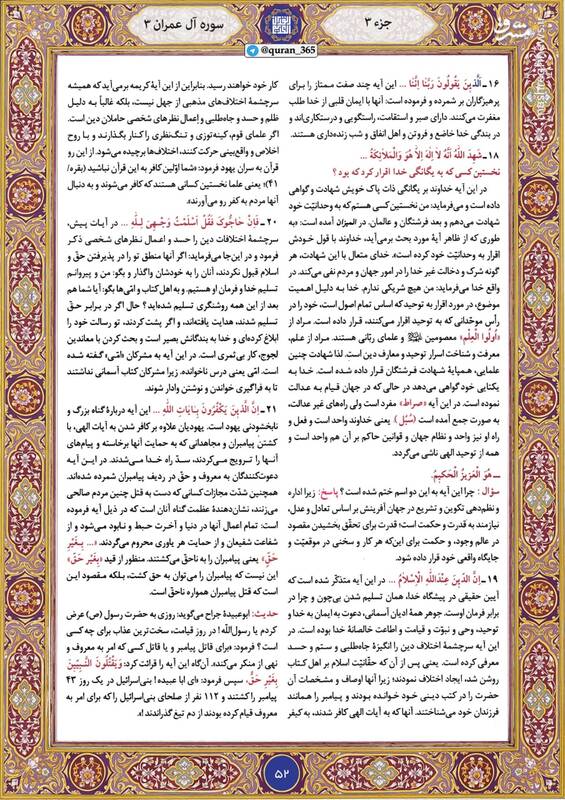 جزء ۳
سوره آل عمران ۳
@quran_365
مشرق
۱۶ـ اَلَّذِينَ يَقُولُونَ رَبَّنَا اِنَّنَا ... این آیه چند صفت ممتاز را برای
پرهیزگاران بر شمرده و فرموده است: آنها با ایمان قلبی از خدا طلب
مغفرت می‌کنند. دارای صبر و استقامت، راستگویی و درستکاری‌اند و
در بندگی خدا خاضع و فروتن و اهل انفاق و شب زنده‌داری هستند.
۱۸ـ شَهِدَ اللَّهُ اَنَّهُ لَا اِلَهَ اِلَّا هُوَ وَالْمَلَائِكَةُ ...
نخستین کسی که به یگانگی خدا اقرار کرد که بود؟
در این آیه خداوند بر یگانگی ذات پاک خویش شهادت و گواهی
داده است و می‌فرماید: من نخستین کسی هستم که به وحدانیّت خود
شهادت می‌دهم و بعد فرشتگان و عالمان. در المیزان آمده است: «به
طوری که از ظاهر آیهٔ مورد بحث برمی‌آید، خداوند با قول خودش
اقرار به وحدانیّت خود کرده است». خدای متعال با این شهادت، هر
گونه شرک و دخالت غیر خدا را در امور جهان و مردم نفی می‌کند. در
واقع خدا می‌فرماید: من هیچ شریکی ندارم. خدا به دلیل اهمیت
موضوع، در مورد اقرار به توحید که اساس تمام اصول است، خود را در
رأس موحّدانی که به توحید اقرار می‌کنند، قرار داده است. مراد از
«اُولُوا الْعِلْمِ» معصومین ﷺ و علمای ربّانی هستند. مراد از علم،
معرفت و شناخت اسرار توحید و معارف دین است. لذا شهادت چنین
علمایی، همپایهٔ شهادت فرشتگان قرار داده شده است. خدا به
یکتایی خود گواهی می‌دهد در حالی که در جهان قیام به عدالت
نموده است. در این آیه «صراط» مفرد است ولی راه‌های غیر عدالت،
به صورت جمع آمده است (سُبُل) یعنی خداوند واحد است و فعل و
راه او نیز واحد و نظام جهان و قوانین حاکم بر آن هم واحد است و
همه از توحید الهی ناشی می‌گردد.
ـــ هُوَ الْعَزِيزُ الْحَكِيمُ.
سؤال : چرا این آیه به این دو اسم ختم شده است؟ پاسخ: زیرا اداره
و نظم‌دهی تکوین و تشریح در جهان آفرینش بر اساس تعادل و عدل،
نیازمند به قدرت و حکمت است؛ قدرت برای تحقّق بخشیدن مقصود
در عالم وجود، و حکمت برای این‌که هر کار و سخنی در موقعیّت و
جایگاه واقعی خود قرار داده شود.
۱۹ـ اِنَّ الدِّينَ عِنْدَاللَّهِ الْاِسْلَامُ... در این آیه متذکّر شده است که
آیین حقیقی در پیشگاه خدا، همان تسلیم شدن بی‌چون و چرا در
برابر فرمان اوست. جوهر همهٔ ادیان آسمانی، دعوت به ایمان به خدا و
توحید، وحی و نبوّت و قیامت و اطاعت خالصانهٔ خدا بوده است. در
این آیه سرچشمهٔ اختلاف دین را انگیزهٔ جاه‌طلبی و ستم و حسد
معرفی کرده است. یعنی پس از آن که حقّانیّت اسلام بر اهل کتاب
روشن شد، ایجاد اختلاف نمودند؛ زیرا آنها اوصاف و مشخصات آن
حضرت را در کتب دینی خود خوانده بودند و پیامبر را همانند
فرزندان خود می‌شناختند. آنها که به آیات الهی کافر شدند، به کیفر
کار خود خواهند رسید. بنابراین از این آیهٔ کریمه برمی‌آید که همیشه
سرچشمهٔ اختلاف‌های مذهبی از جهل نیست، بلکه غالباً به دلیل
ظلم و حسد و جاه‌طلبی و اِعمال نظرهای شخصی حاملان دین است.
اگر علمای قوم، کینه‌توزی و تنگ‌نظری را کنار بگذارند و با روح
اخلاص و واقع‌بینی حرکت کنند، اختلاف‌ها برچیده می‌شود. از این رو
قرآن به سران یهود فرمود: «شما اوّلین کافر به این قرآن نباشید (بقره/
۴۱)»؛ یعنی علما نخستین کسانی هستند که کافر می‌شوند و به دنبال
آنها مردم به کفر رو می‌آورند».
۲۰ـ فَاِنْ حَاجُّوكَ فَقُلْ اَسْلَمْتُ وَجْهِيَ لِلَّهِ ... در آیات پیش،
سرچشمهٔ اختلافات دین را حسد و اعمال نظرهای شخصی ذکر
فرمود و در این‌جا می‌فرماید: اگر آنها منطق تو را در پذیرفتن حقّ و
اسلام قبول نکردند، آنان را به خودشان واگذار و بگو: من و پیروانم
تسلیم خدا و فرمان او هستیم. و به اهل کتاب و امّی‌ها بگو: آیا شما هم
بعد از این همه روشنگری تسلیم شده‌اید؟ حال اگر در برابر حقّ
تسلیم شدند، هدایت یافته‌اند، و اگر پشت کردند، تو رسالت خود را
ابلاغ کرده‌ای و خدا به بندگانش بصیر است و بحث کردن با معاندین
لجوج، کار بی‌ثمری است. در این آیه به مشرکان «امّی» گفته شده
است. امّی یعنی درس ناخوانده، زیرا مشرکان کتاب آسمانی نداشتند
تا به فراگیری خواندن و نوشتن وادار شوند.
۲۱ـ اِنَّ الَّذِينَ يَكْفُرُونَ بِاٰيَاتِ اللَّهِ ... این آیه دربارهٔ گناه بزرگ و
نابخشودنی یهود است. یهودیان علاوه بر کافر شدن به آیات الهی، با
کشتن پیامبران و مجاهدانی که به حمایت آنها برخاسته و پیام‌های
آنها را ترویج می‌کردند، سدّ راه خدا می‌شدند. در این آیه
دعوت‌کنندگان به معروف و حقّ در ردیف پیامبران شمرده شده‌اند.
همچنین شدّت مجازات کسانی که دست به قتل چنین مردم صالحی
می‌زنند، نشان‌دهندهٔ عظمت گناه آنان است که در ذیل آیه فرموده
است: تمام اعمال آنها در دنیا و آخرت حبط و نابود می‌شود و از
شفاعت شفیعان و از حمایت هر یاوری محروم می‌گردند. «... بِغَيْرِ
حَقٍّ» یعنی پیامبران را به ناحقّ می‌کشتند. منظور از قید «بِغَيْرِ حَقٍّ»
این نیست که پیامبران را می‌توان به حق کشت، بلکه مقصود این
است که قتل پیامبران همواره ناحق است.
حدیث: ابوعبیدهٔ جراح می‌گوید: روزی به حضرت رسول (ص) عرض
کردم یا رسول‌اللّه! در روز قیامت، سخت‌ترین عذاب برای چه کسی
است؟ فرمود: «برای قاتل پیامبر و یا قاتل کسی که امر به معروف و
نهی از منکر می‌کند». آن‌گاه این آیه را قرائت کرد: وَيَقْتُلُونَ النَّبِيِّينَ
بِغَيْرِ حَقٍّ، سپس فرمود: «ای ابا عبیده! بنی‌اسرائیل در یک روز ۴۳
پیامبر را کشتند و ۱۱۲ نفر از صلحای بنی‌اسرائیل را که برای امر به
معروف قیام کرده بودند از دم تیغ گذراندند!».
۵۲